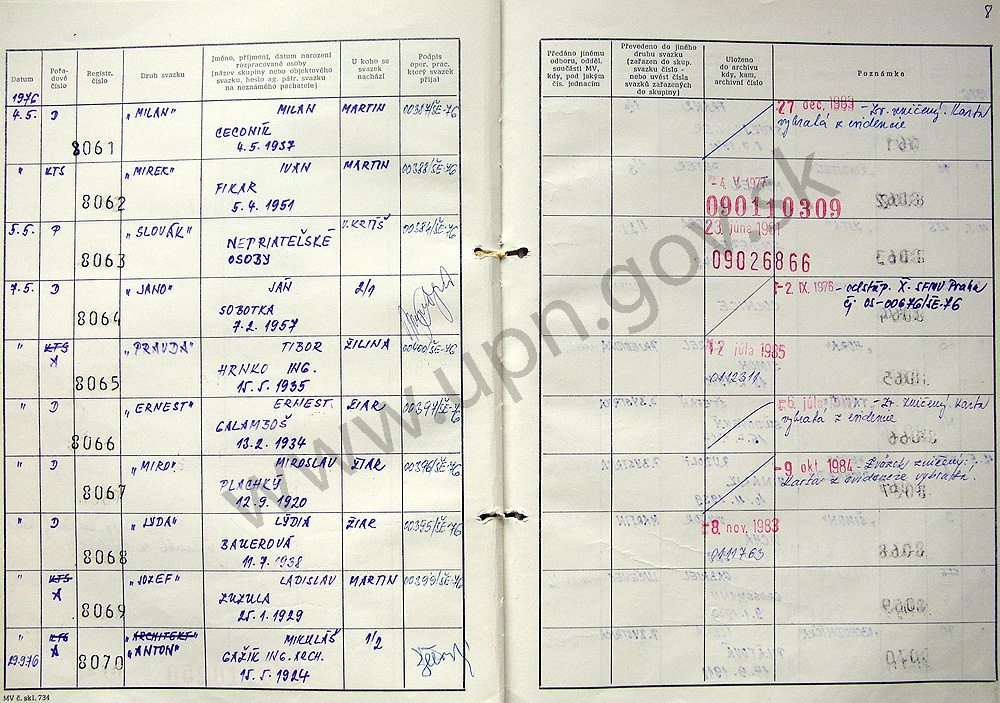 8
Datum
Pořadové číslo
Registr. číslo
Druh svazku
Jméno, příjmení, datum narození
rozpracované osoby
(název skupiny nebo objektového
svazku, heslo ag. pátr. svazků
na neznámého pachatele)
U koho se
svazek
nachází
Podpis
oper. prac.
který svazek
přijal
Předáno jinému
odboru, odděl.
součásti MV,
kdy, pod jakým
čís. jednacím
Převedeno do jiného
druhu svazku
(zařazen do skup.
svazku číslo -
nebo uvést čísla
svazků zařazených
do skupiny)
Uloženo
do archivu
kdy, kam,
archivní číslo
Poznámka
1976
4.5. D 8061 „MILAN" MILAN MARTIN 00387/ŠE-76
CECONÍK
4.5.1937
27 dec. 1983 - Zv. zničený. Karta
vybratá z evidencie
" KTS 8062 „MIREK" IVAN MARTIN 00388/ŠE-76
FIKAR
5.4.1951
-4. V. 1977
090110309
5.5. P 8063 „SLOVÁK" NEPRIATEĽSKÉ V. KRTÍŠ 00384/ŠE-76
OSOBY
23. júna 1981
09026866
7.5. D 8064 „JANO" JÁN 2/1
SOBOTKA
7.2.1957
-2. IX. 1976 - odstúp. X. SFMV Praha
čj OS-00676/ŠE-76
" KTS A 8065 „PRAVDA" TIBOR ŽILINA 00400/ŠE-76
HRNKO ING.
15.5.1935
12 júla 1985
0112311
" D 8066 „ERNEST" ERNEST ŽIAR 00397/ŠE-76
GALAMBOŠ
13.2.1934
júla - Zv. zničený. Karta
vybratá z evidencie
" D 8067 „MIRO" MIROSLAV ŽIAR 00396/ŠE-76
PLACHKÝ
12.9.1920
-9 okt. 1984 - Zväzok zničený.
Karta z evidencie vybratá.
" D 8068 „LYDA" LÝDIA ŽIAR 00395/ŠE-76
BAUEROVÁ
11.7.1938
-8. nov. 1983
0111763
" KTS A 8069 „JOZEF" LADISLAV MARTIN 00399/ŠE-76
ZUZULA
25.1.1929
" KTS A 8070 „ARCHITEKT" MIKULÁŠ 1/2
29.9.76 „ANTON" GAŽÍK ING. ARCH.
15.5.1924
MV č. skl. 734
www.upn.gov.sk